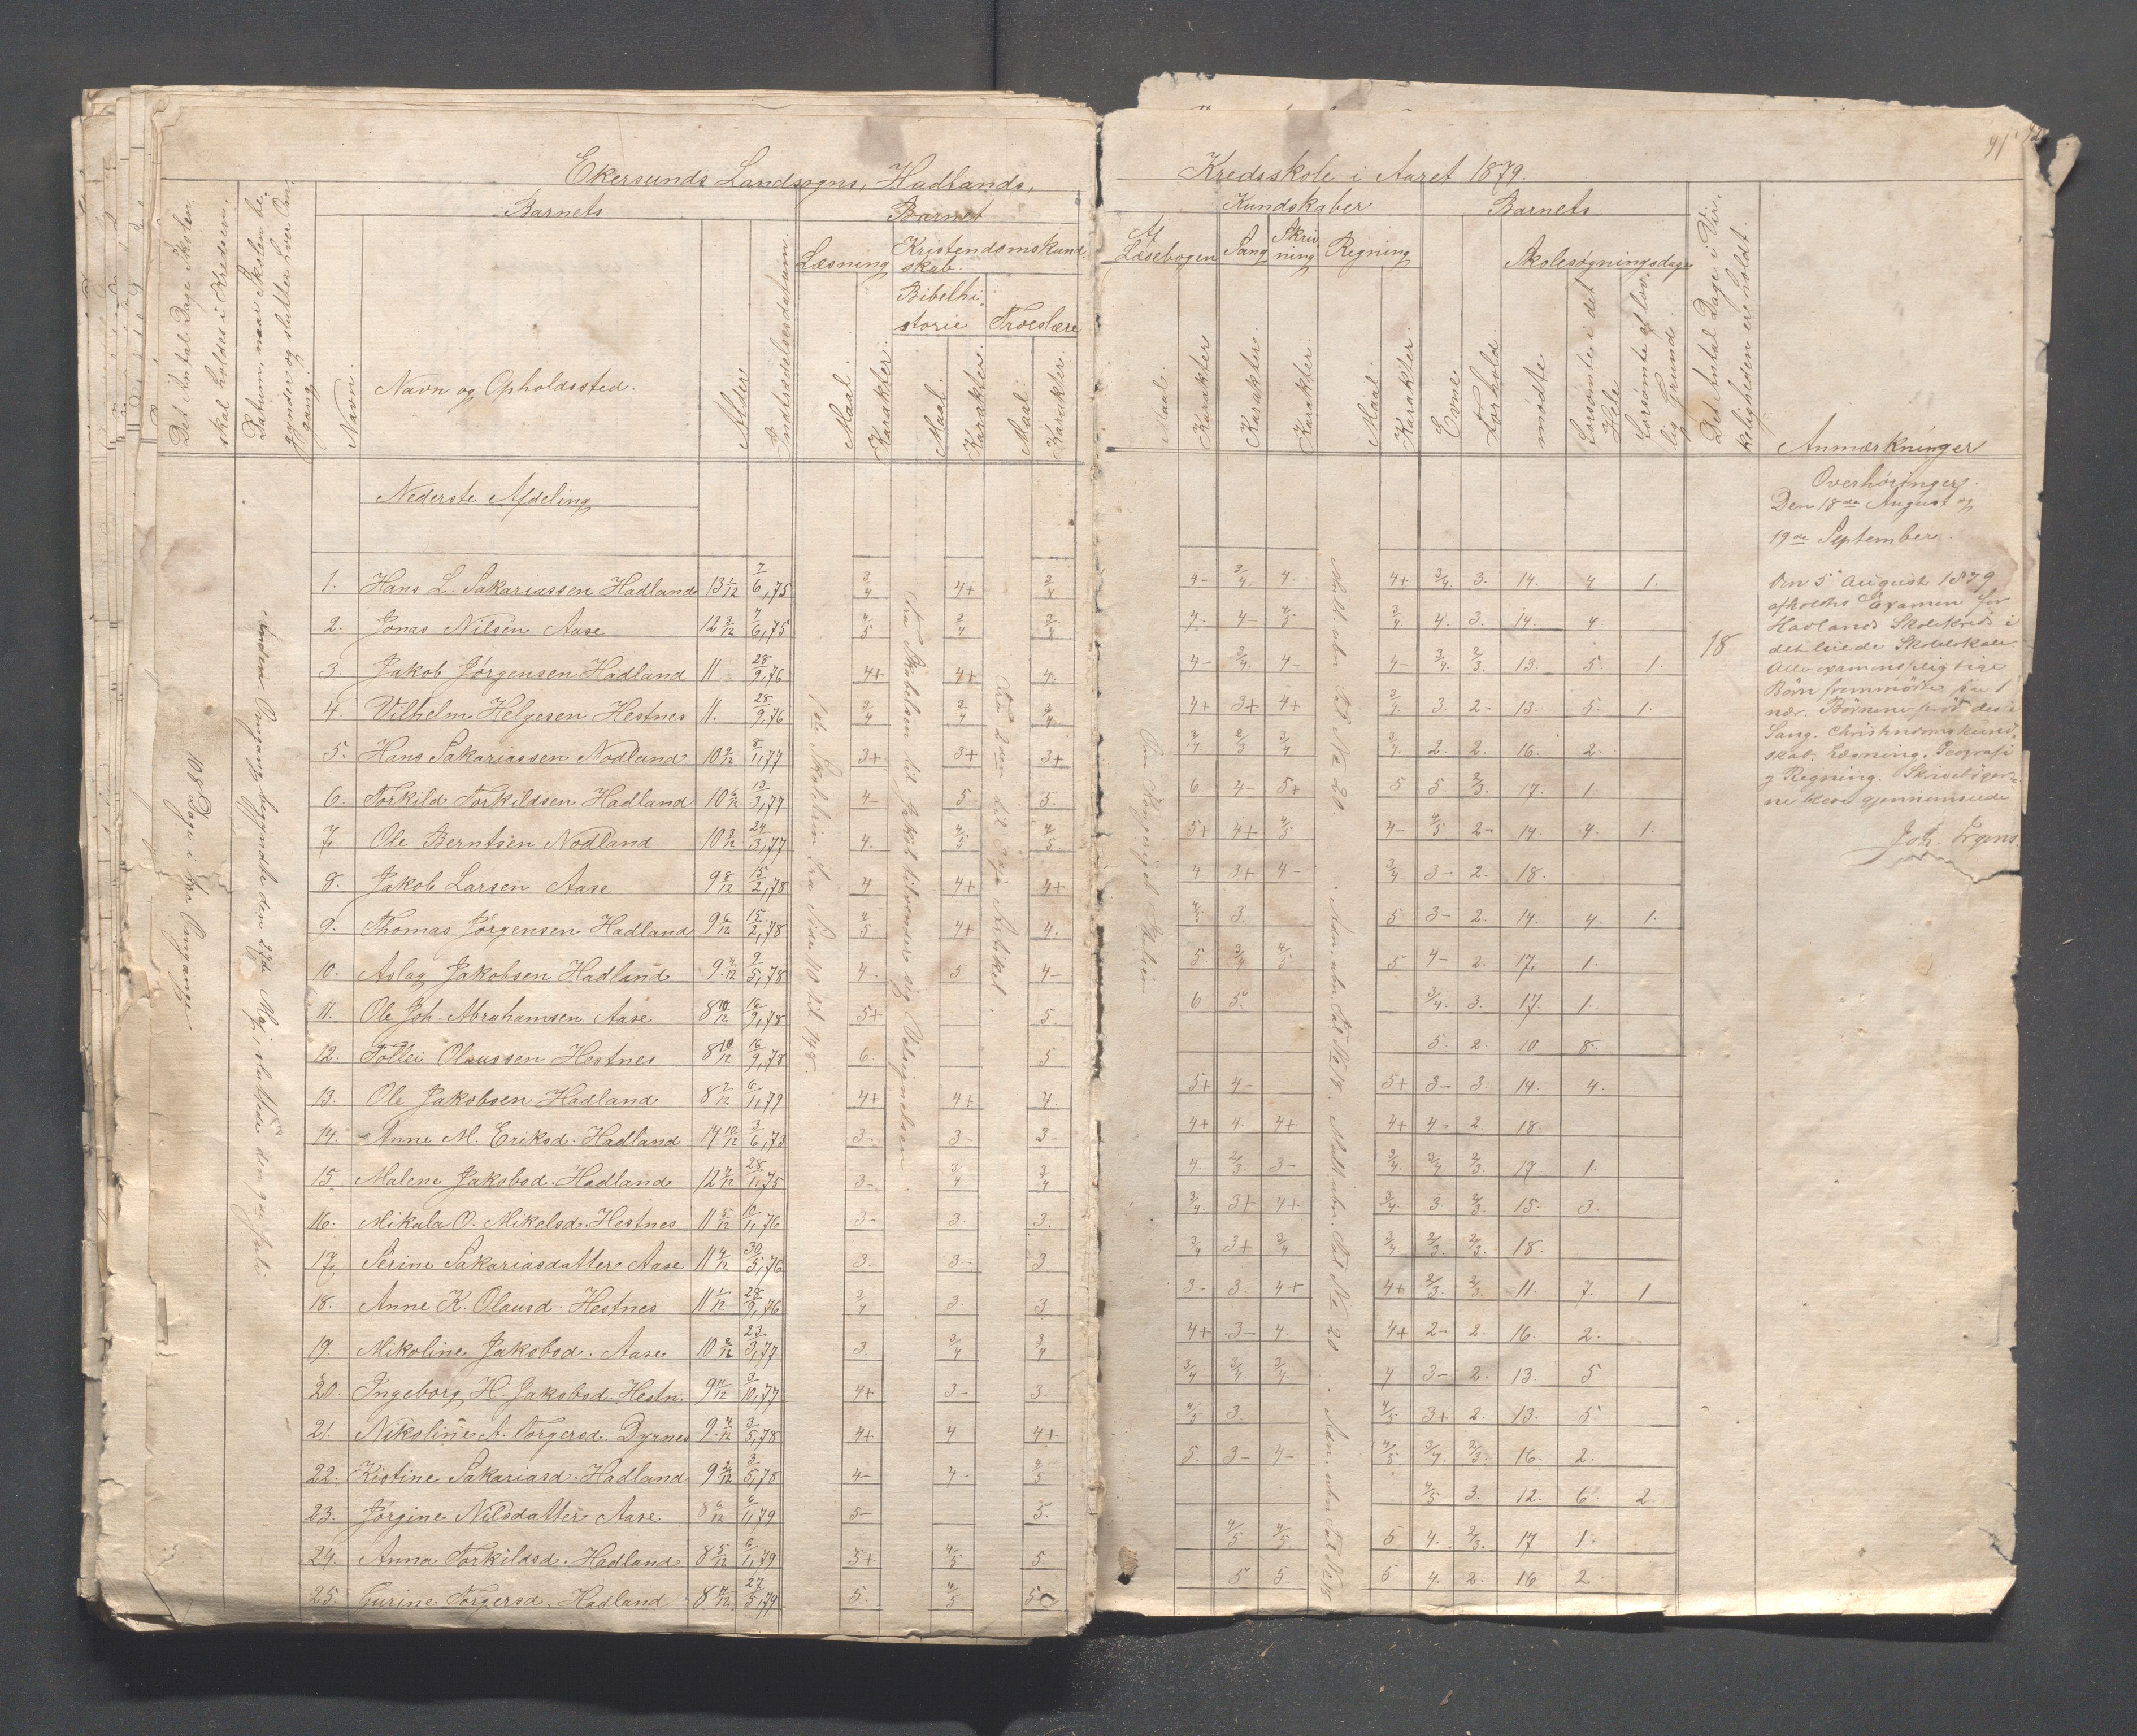 Ekersunds Landsogns, Hadlands, Kredsskole i Aaret 1879.
91
Det Antal Dage Skolen skal holdes i Kredsen.
Datum, naar Skolen begynder og slutter hver Omgang.
Barnets
Navn.
Navn og Opholdssted.
Alder
Indtrædelsesdatum.
Barnets Kundskaber
Læsning
Kristendomskundskab.
Bibelhistorie
Troeslære
Maal.
Karakter.
Maal.
Karakter.
Maal.
Karakter.
Af Læsebogen
Sang
Skrivning
Regning
Maal.
Karakter
Karakter.
Karakter.
Maal.
Karakter.
Barnets
Evne
Forhold.
Skolesøgningsdage
mødte
forsømte i det Hele
forsømte af lovlig Grund.
Det Antal Dage i Virkeligheden er holdt.
Anmærkninger
Nederste Afdeling
1. Hans L. Sakariassen Hadland 13 1/12 7/6,75 3/4 4+ 3/4 4- 3/4. 4- 4+ 3/4. 3. 14. 4 1.
2. Jonas Nilsen Aase 12 2/12 7/6,75 4/5 3/4 3/4 4- 4- 4/5 3/4 4. 3. 14. 4.
3. Jakob Jørgensen Hadland 11 28/9,76 4+ 4+ 4. 4- 3/4. 4- 4- 3/4. 2/3. 13. 5. 1.
4. Vilhelm Helgesen Hestnes 11. 28/9,76 3/4 3/4 3/4 4+ 3+ 4+ 3/4. 3. 2- 13. 5. 1.
5. Hans Sakariassen Nodland 10 9/12 8/1,77 3+ 3+ 3+ 3/4 2/3 3/4 3/4. 2. 2. 16. 2.
6. Torkild Torkildsen Hadland 10 6/12 13/3,77 4- 5 5. 6 4- 5+ 5 5. 2/3. 17. 1.
7. Ole Berntsen Nodland 10 3/12 24/3,77 4. 4/5 4/5 5+ 4+ 4/5 4- 4/5 2- 14. 4. 1.
8. Jakob Larsen Aase 9 8/12 15/2,78 4 4+ 4+ 4 3+ 4- 3/4 3- 2. 18.
9. Thomas Jørgensen Hadland 9 6/12 15/2,78 4/5 4+ 4. 4/5 3. 5 3- 2. 14. 4. 1.
10. Aslag Jakobsen Hadland 9 4/12 9/5,78 4- 5 4- 5 3/4 4/5 5 4- 2. 17. 1.
11. Ole Joh. Abrahamsen Aase 8 10/12 16/9,78 5+ 5. 6 5. 3/4. 3. 17. 1.
12. Tollei Olaussen Hestnes 8 10/12 16/9,78 6. 5 5. 2. 10 8.
13. Ole Jakobsen Hadland 8 7/12 6/1,79 4+ 4+ 4. 5+ 4- 5+ 3- 3. 14. 4.
14. Anne M. Eriksd. Hadland 14 10/12 3/6,73 3- 3- 3- 4+ 4. 4+ 4+ 4- 2. 18.
15. Malene Jakobsd. Hadland 12 7/12 28/1,75 3- 3/4 3/4 4. 2/3. 3- 3/4. 3/4 2/3. 17. 1.
16. Mikala O. Mikelsd. Hestnes 11 5/12 10/11,76 3- 3. 3. 3/4. 3+ 4+ 3/4. 3. 2/3. 15. 3.
17. Serine Sakariasdatter Aase 11 4/12 30/5,76 3. 3- 3 3/4 3+ 3/4 3/4 2/3. 2/3. 18.
18. Anne K. Olausd. Hestnes 11 1/12 28/9,76 3/4 3. 3 3- 3. 4+ 4+ 2/3. 2/3. 11. 7. 1
19. Mikoline Jakobsd. Aase 10 3/12 23/3,77 3. 3/4 3/4 4+ 3- 4. 4+ 2- 2. 16. 2.
20. Ingeborg H. Jakobsd. Hestn. 9 11/12 3/10,77 4+ 3- 3 3/4 3/4 3/4. 4 3- 2. 13. 5
21. Nikoline A. Torgersd. Dyrnes 9 4/12 3/5,78 4+ 4 4+ 4/5 3. 4/5 3+ 2. 13. 5
22. Kistine Sakariasd. Hadland 9 3/12 3/5,78 4- 4- 4/5 5. 3- 4- 4/5 3/4 2/3. 16. 2.
23. Jørgine Nilsdatter Aase 8 6/12 6/1,79 5- 5. 4/5 3. 12. 6. 2.
24. Anna Torkildsd. Hadland 8 5/12 6/1,79 5+ 4/5 5 4/5 4/5 5 4. 2/3. 17 1.
25. Gurine Torgersd. Hadland 8 4/12 27/5,79 5. 4/5 5 5 5. 5 4. 2. 16 2
108 Dage i Omgange
Anden Omgang begyndte den Maj, sluttede den 9de Juli
1ste Skoletrin fra Side 110 til 148.
Fra Skabelsen til Jakob tilvender sig Velsignelsen
Fra 2den til 3die Artikel.
18
Overhøringer.
Den 18de August og
19de September.
Den 5 August 1879
afholdtes Examen for
Hadlands Skolekreds i
det leiede Skolelokale.
Alle examenspligtige
Børn fremmødte paa 1
nær. Børnene prøvedes i
Sang. Christendomskundskab. Læsning. Geografi
og Regning. Skrivebøgerne bleve gjennemseede